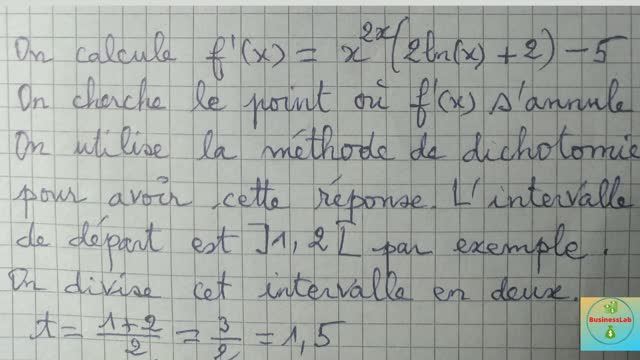 On calcule f'(x) = x^{2x}(2ln(x) + 2) - 5
On cherche le point où f'(x) s'annule
On utilise la méthode de dichotomie
pour avoir cette réponse. L'intervalle
de départ est ]1, 2[ par exemple.
On divise cet intervalle en deux.
t = \frac{1+2}{2} = \frac{3}{2} = 1,5
BusinessLab